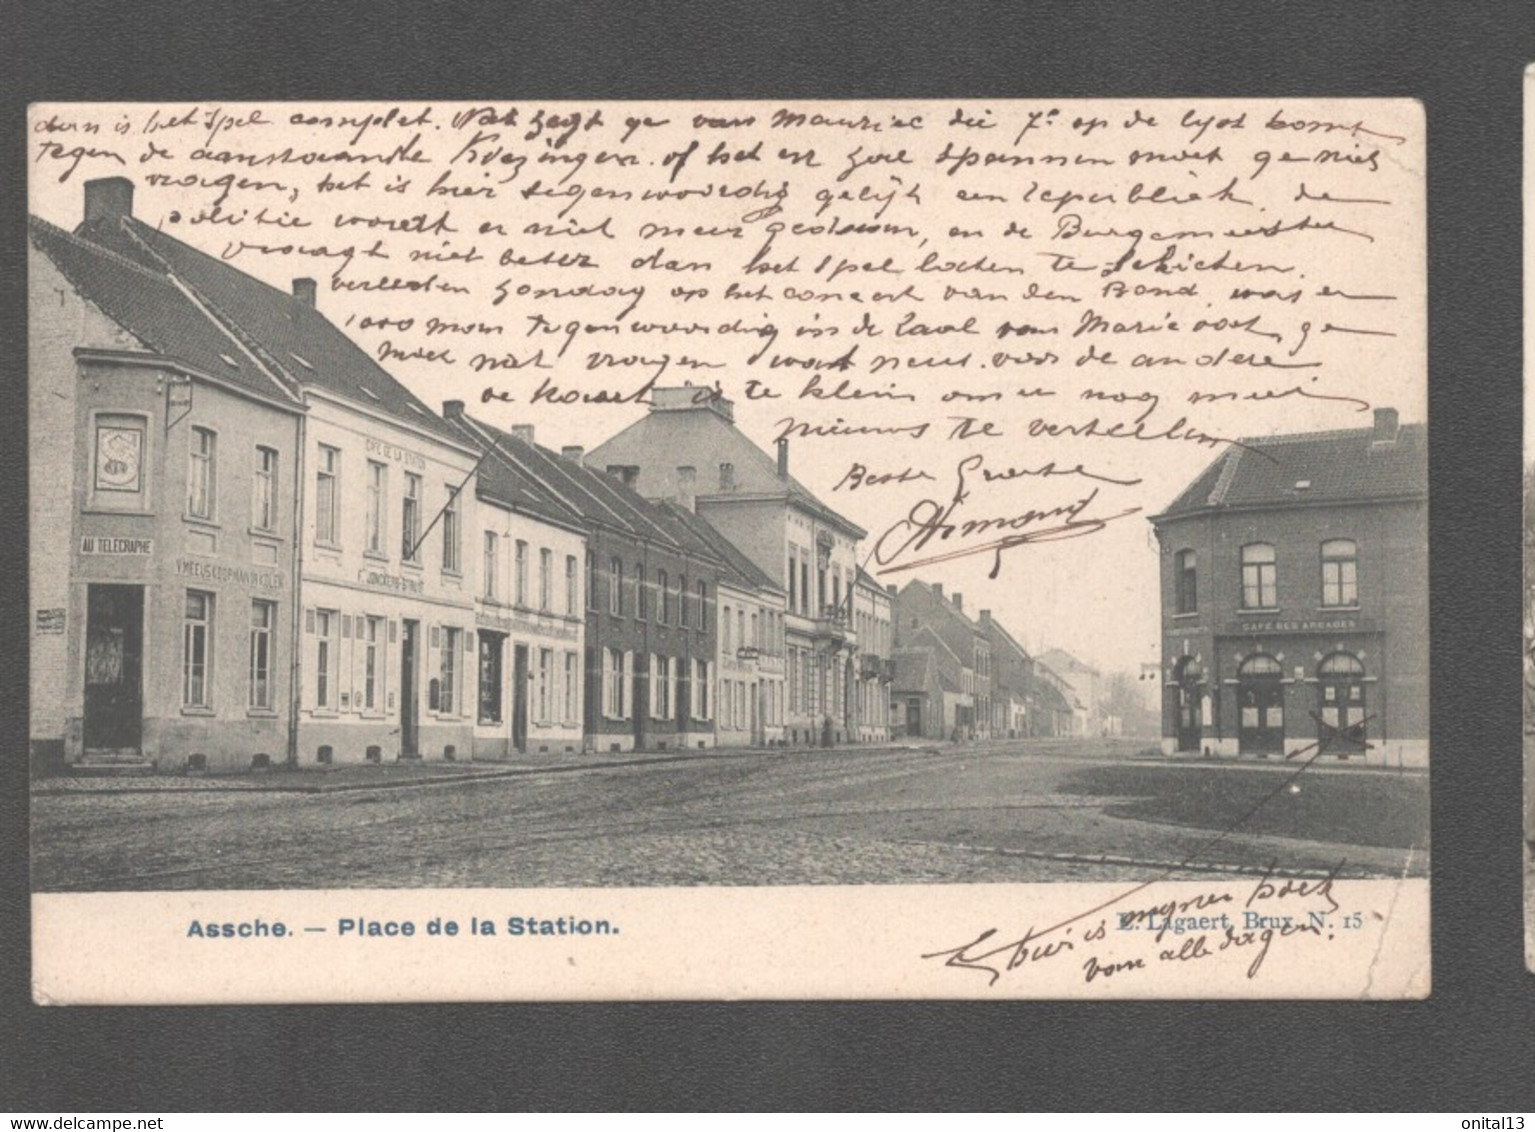 dan is het spel complet. Wat zegt ge van Mauriec die 7e op de lyst komt
tegen de aanstaande Kiezingen. of het er zal spannen moet ge niet
vragen, het is hier tegenwoordig gelijk een republiek. de
politie wordt er niet meer gedown, en de Burgemeester
vraagt niet beter dan het spel laten te schieten.
verleden zondag op het concert van den Bond, was er
1000 man tegenwoordig in de zaal van Marie oost, ge
moet wat vragen wat nieus. voor de andere
de kaart is te klein om u nog meer
nieuws te vertellen
Beste Groete
Armand
CAFÉ DE LA STATION
AU TÉLÉGRAPHE
CAFÉ DES ARCADES
Assche. — Place de la Station.
L. Lagaert, Brux. N. 15
hier is mynen hoek
van alle dagen.
delcampe.net
onital13